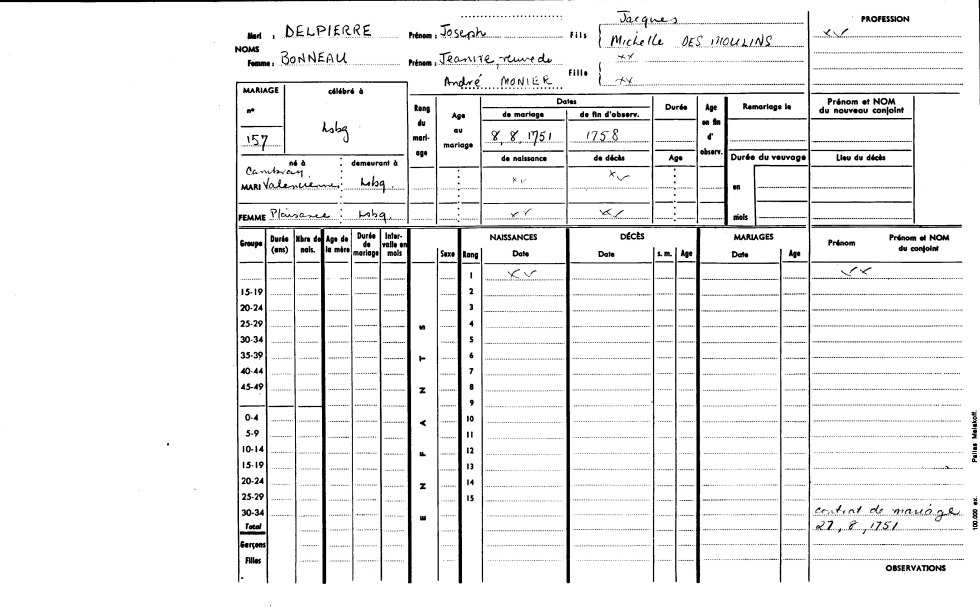 Mari : DELPIERRE Prénom : Joseph Fils Jacques
Michelle DES MOULINS
PROFESSION
xv
NOMS
Femme : BONNEAU Prénom : Jeanne, veuve de
André MONIER
Fille xx
xx
MARIAGE célébré à
n° 157 Lsbg
Rang du mariage
Age au mariage
Dates
de mariage de fin d'observ.
8, 8, 1751 1758
Durée
Age en fin d' observ.
Remariage le
Prénom et NOM du nouveau conjoint
né à demeurant à
de naissance de décès Age
Durée du veuvage
Lieu du décès
Cambray,
MARI Valenciennes Lsbg.
xv xv
en
FEMME Plaisance Lsbg.
xv xv
mois
Groupe Durée (ans) Nbre de nais. Age de la mère Durée de mariage Intervalle en mois
ENFANTS
Sexe Rang
NAISSANCES Date
DÉCÈS Date s. m. Age
MARIAGES Date Age
Prénom Prénom et NOM du conjoint
1 xv xx
15-19 2
20-24 3
25-29 4
30-34 5
35-39 6
40-44 7
45-49 8
9
0-4 10
5-9 11
10-14 12
15-19 13
20-24 14
25-29 15
30-34
Total
Garçons
Filles
contrat de mariage
27, 8, 1751
OBSERVATIONS
100.000 ex. Pallas Malakoff.